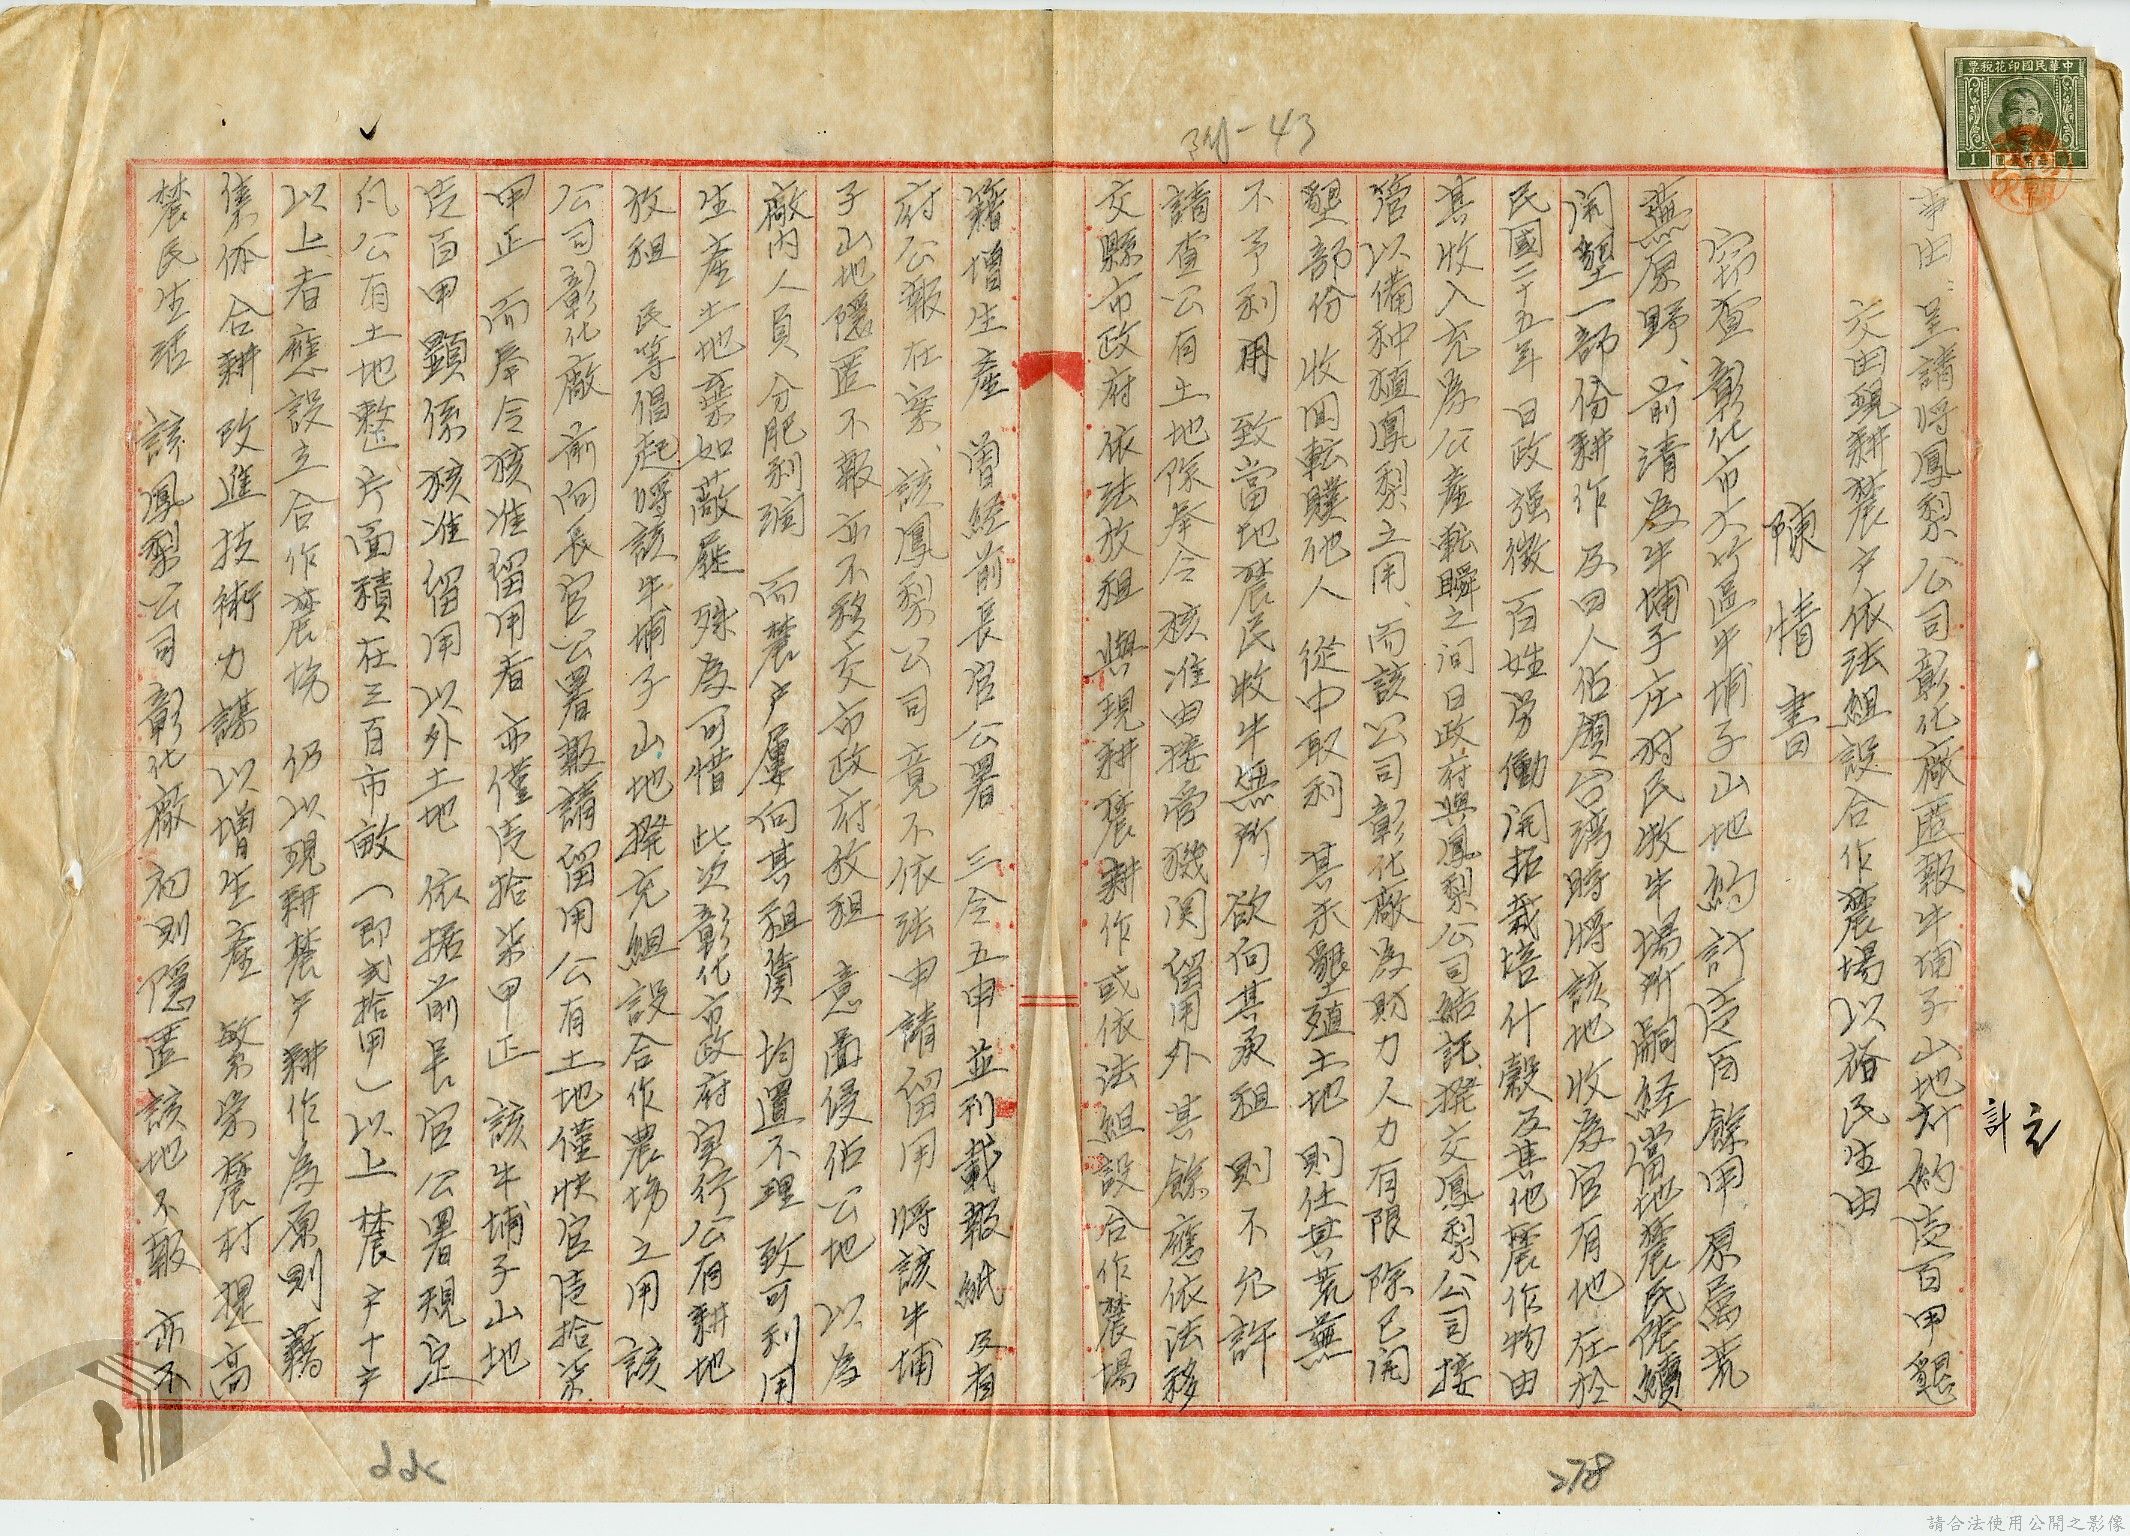 中華民國印花稅票
1
1
附-43
事由：呈請將鳳梨公司彰化廠匿報牛埔子山地約壹百甲懇
交由現耕農戶依法組設合作農場以裕民生由
陳情書
竊查彰化市大竹區牛埔子山地約計壹百餘甲原屬荒
蕪原野、前清為牛埔子庄對民牧牛場所嗣經當地農民陸續
開墾一部份耕作及日人佔領台灣時將該地收為官有地在於
民國二十五年日政强徵百姓勞働開拓栽培什穀及其他農作物由
其收入充為公產転瞬之间日政府與鳳梨公司結託撥交鳳梨公司接
管以備种殖鳳梨之用、而該公司彰化廠為財力人力有限除已開
墾部份收回転贌他人從中取利其未墾殖土地則任其荒蕪
不予利用致當地農民牧牛無所欲向其承租則不允許
請查公有土地除奉令核准由接管機関留用外其餘應依法移
交縣市政府依法放租與現耕農耕作或依法組設合作農場
籍增生產曾經前長官公署三令五申並刊載報紙及省
府公報在案、該鳳梨公司竟不依法申請留用將該牛埔
子山地隱匿不報亦不移交市政府放租意圖侵佔公地以為
廠內人員分肥剝削而農戶屢向其租賃均置不理致可利用
生產土地棄如蔽屣殊為可惜此次彰化市政府实行公有耕地
放租民等倡起將該牛埔子山地撥充組設合作農場之用該
公司彰化廠前向長官公署報請留用公有土地僅快官壹拾柒
甲正而奉令核准留用者亦僅壹拾柒甲正該牛埔子山地
壹百甲顯係核准留用以外土地依据前長官公署規定
凡公有土地整片面積在三百市畝(即弍拾甲)以上農戶十戶
以上者應設立合作農場仍以現耕農戶耕作為原則藉
集体合耕改進技術力謀以增生產繁荣農村提高
農民生活該鳳梨公司彰化廠初則隱匿該地不報亦不
計
278
請合法使用公開之影像